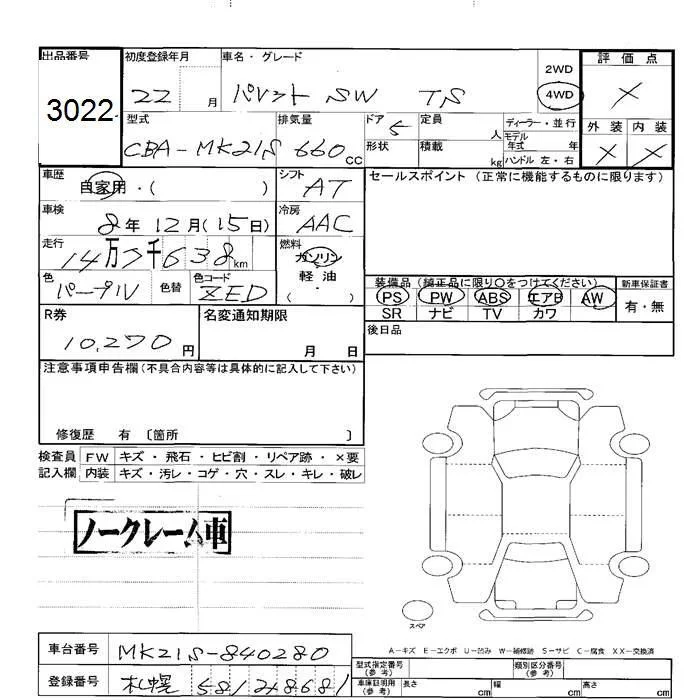 出品番号
3022
初度登録年月
22 月
車名・グレード
パレット SW TS
2WD
4WD
評価点
×
外装 内装
× ×
型式
CBA-MK21S
排気量
660 cc
ドア 5
形状
定員 人
積載 kg
ディーラー・並行
モデル年式 年
ハンドル 左・右
車歴
自家用・( )
シフト
AT
セールスポイント (正常に機能するものに限ります)
車検
8年 12月(15日)
冷房
AAC
走行
14万 7千 638 km
燃料
ガソリン
軽油
( )
色
パープル
色替
色コード
ZED
装備品 (純正品に限り〇をつけてください)
PS PW ABS エアB AW
SR ナビ TV カワ
新車保証書
有・無
R券
10,270円
名変通知期限
月 日
後日品
注意事項申告欄(不具合内容等は具体的に記入して下さい)
修復歴 有 〔箇所 〕
検査員記入欄
FW キズ・飛石・ヒビ割・リペア跡・×要
内装 キズ・汚レ・コゲ・穴・スレ・キレ・破レ
ノークレーム車
スペア
A-キズ E-エクボ U-凹み W-補修跡 S-サビ C-腐食 XX-交換済
車台番号
MK21S-840280
登録番号
札幌 581
型式指定番号(参考)
類別区分番号(参考)
車庫証明用(参考)
長さ cm 幅 cm 高さ cm